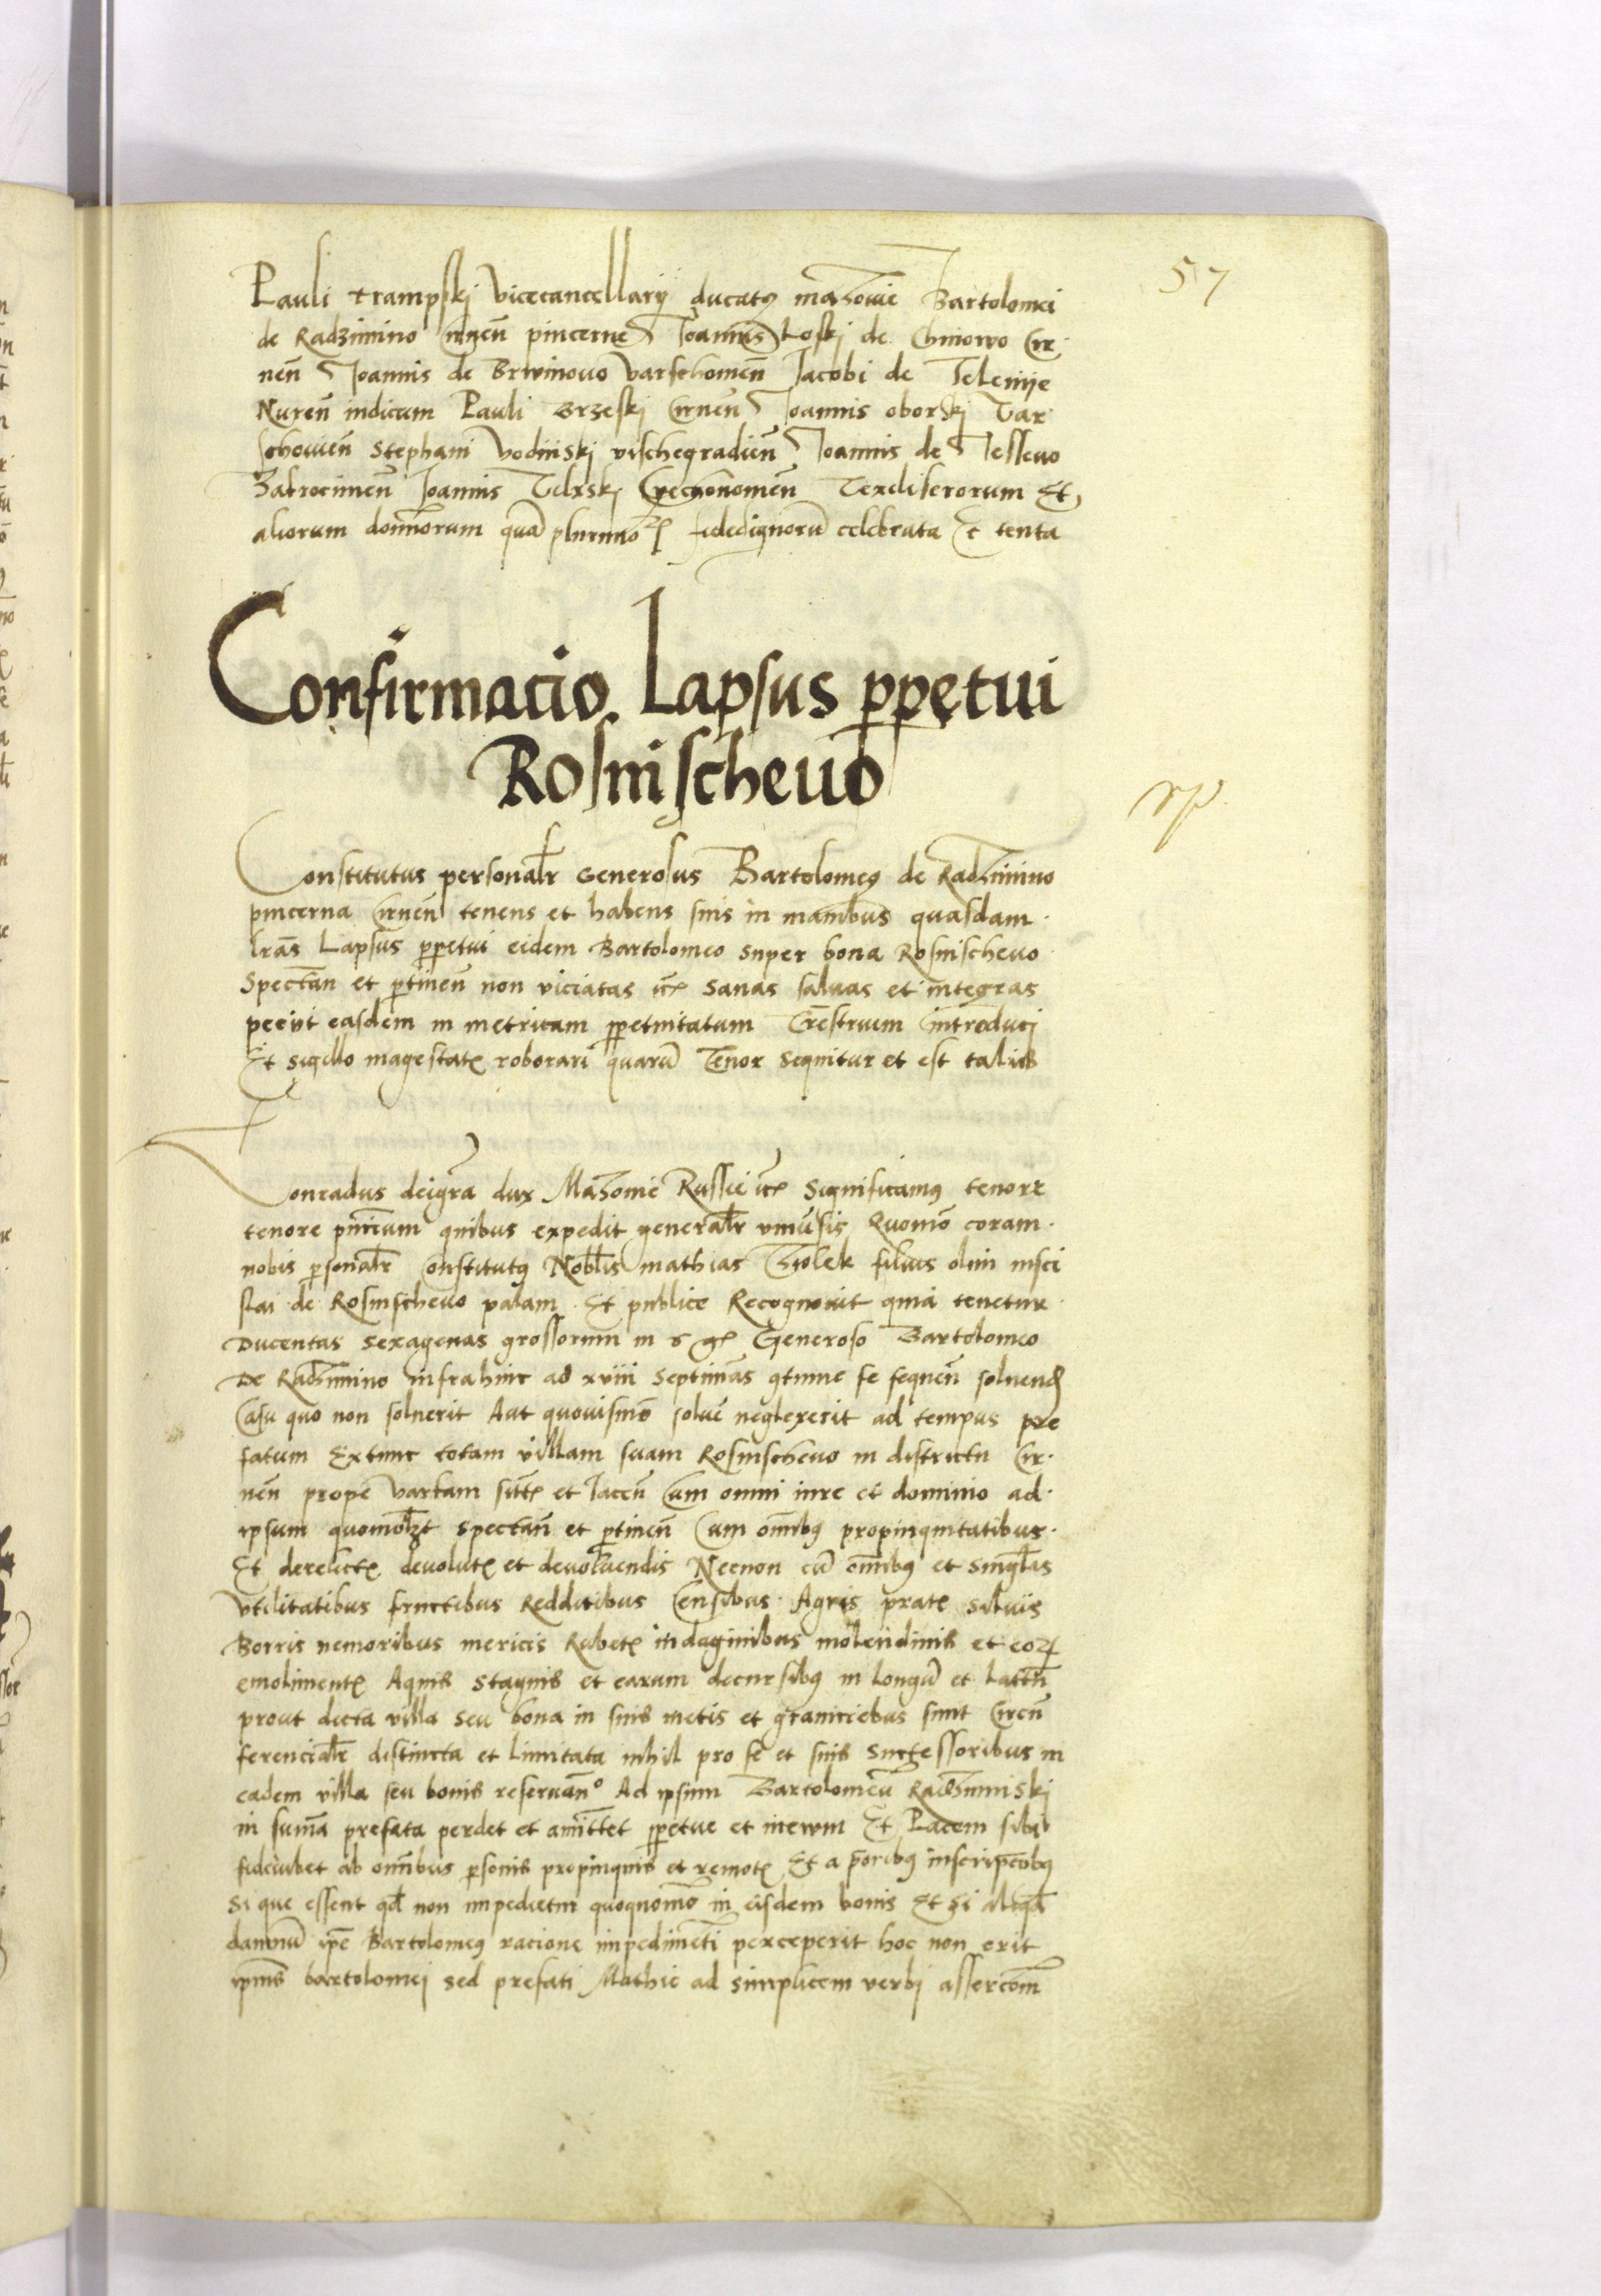 57
Pauli trampskj vicecancellarij ducatus mazouie Bartolomei
de Radzimino Cirnen pincerne Joannis Loskj de Chinowo Cir
nen Joannis de Brwinouo varschouien Jacobi de
Nuren iudicum Pauli Brzeskj Cirnen Joannis oborskj Var
schouien Stephani Vodinskj vischegradien Joannis de Jesseuo
Zakrocimen Joannis Czechonomen Texdiferorum Et
aliorum domnorum quā plurimoꝝ fidedignorū celebrata et tenta
Confirmacio Lapsus ppetui
Rosnischeuo
Constitutus personalr Generosus Bartolomeꝰ de Radzimino
pincerna Cirnen tenens et habens suis in manibus quasdam
lrās Lapsus ppetui eidem Bartolomeo super bona Rosnischeuo
Spectan et ptinen non viciatas etc Sanas saluas et integras
peciit easdem in metricam ppetuitatum Trestrium introduci
Et sigillo magestatis roborari quarū Tenor sequitur et est talis
Conradus deigra dux Mazouie Russie etc Significamus tenore
tenore pntium quibus expedit generalr vniuersis Quomō coram
nobis psonalr Constitutꝰ Noblis mathias filius olim msci
slai de Rosnischeuo palam Et publice Recognouit quia tenetur
Ducentas sexagenas grossorum in Generoso Bartolomeo
De Radzimino infrahinc ad xviii septimas se sequen soluend
Casu quo non soluerit Aut quouismō solue neglexerit ad tempus pre
fatum Extunc totam villam suam Rosnischeuo in districtu Cir
nen prope vartam sitt et Jacen Cum omni iure et dominio ad
ipsum quomolzt spectan et ptinen Cum omībꝰ propinquitatibus
Et derelictis deuolutis et deuoluendis Necnon cū omībꝰ et singlis
vtilitatibus fructibus Redditibus Censibus Agris pratis siluis
Borris nemoribus mericis Rubetis indaginibus molendinis et eoꝝ
emolimentis Aquis stagnis et earum decursibꝰ in longū et latū
prout dicta villa seu bona in suis metis et graniciebus sunt Circū
ferencialr distincta et limitata nihil pro se et suis successoribus in
eadem villa seu bonis reseruanº Ad ipsum Bartolomeū Radzimiski
in sumā prefata perdet et amittet ppetue et in euum Et Pacem sibi
fideiubet ab omībus psonis propinquis et remotis Et a prioribꝰ inscripcōibꝰ
Si que essent qd non impedietur quoquomō in eisdem bonis Et si aliqd
damnū ipe Bartolomeꝰ racione impedimēti perceperit hoc non erit
ipius bartolomei sed prefati Mathie ad simplicem verbi assercom